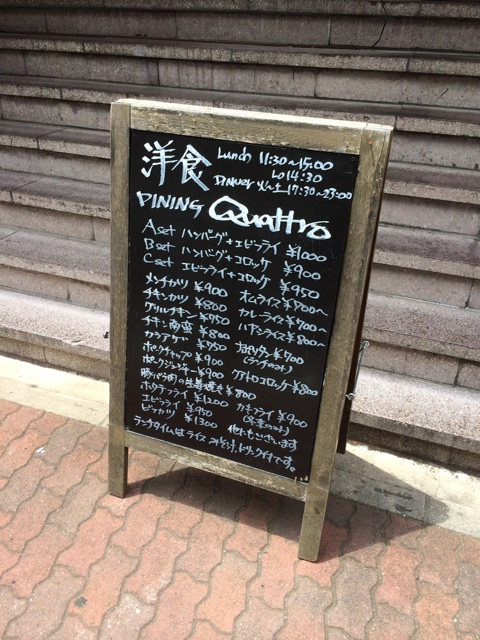 洋食 Lunch 11:30~15:00
LO 14:30
Dinner 火~土 17:30~23:00
DINING Quattro
Aset ハンバーグ+エビフライ ¥1000
Bset ハンバーグ+コロッケ ¥900
Cset エビフライ+コロッケ ¥950
メンチカツ ¥900 オムライス ¥800~
チキンカツ ¥800 カレーライス ¥700~
グリルチキン ¥950 ハヤシライス ¥800~
チキン南蛮 ¥800
カラアゲ ¥750 ¥700
ポークチャップ ¥900 (ランチのみ)
ポークジンジャー ¥900 クアトロコロッケ ¥800
豚バラ肉の生姜焼き ¥800
ホタテフライ ¥1200 カキフライ ¥900
エビフライ ¥950 (冬季のみ)
ビフカツ ¥1300 他にもございます
ランチタイムはライス みそ汁、ドリンク付です。